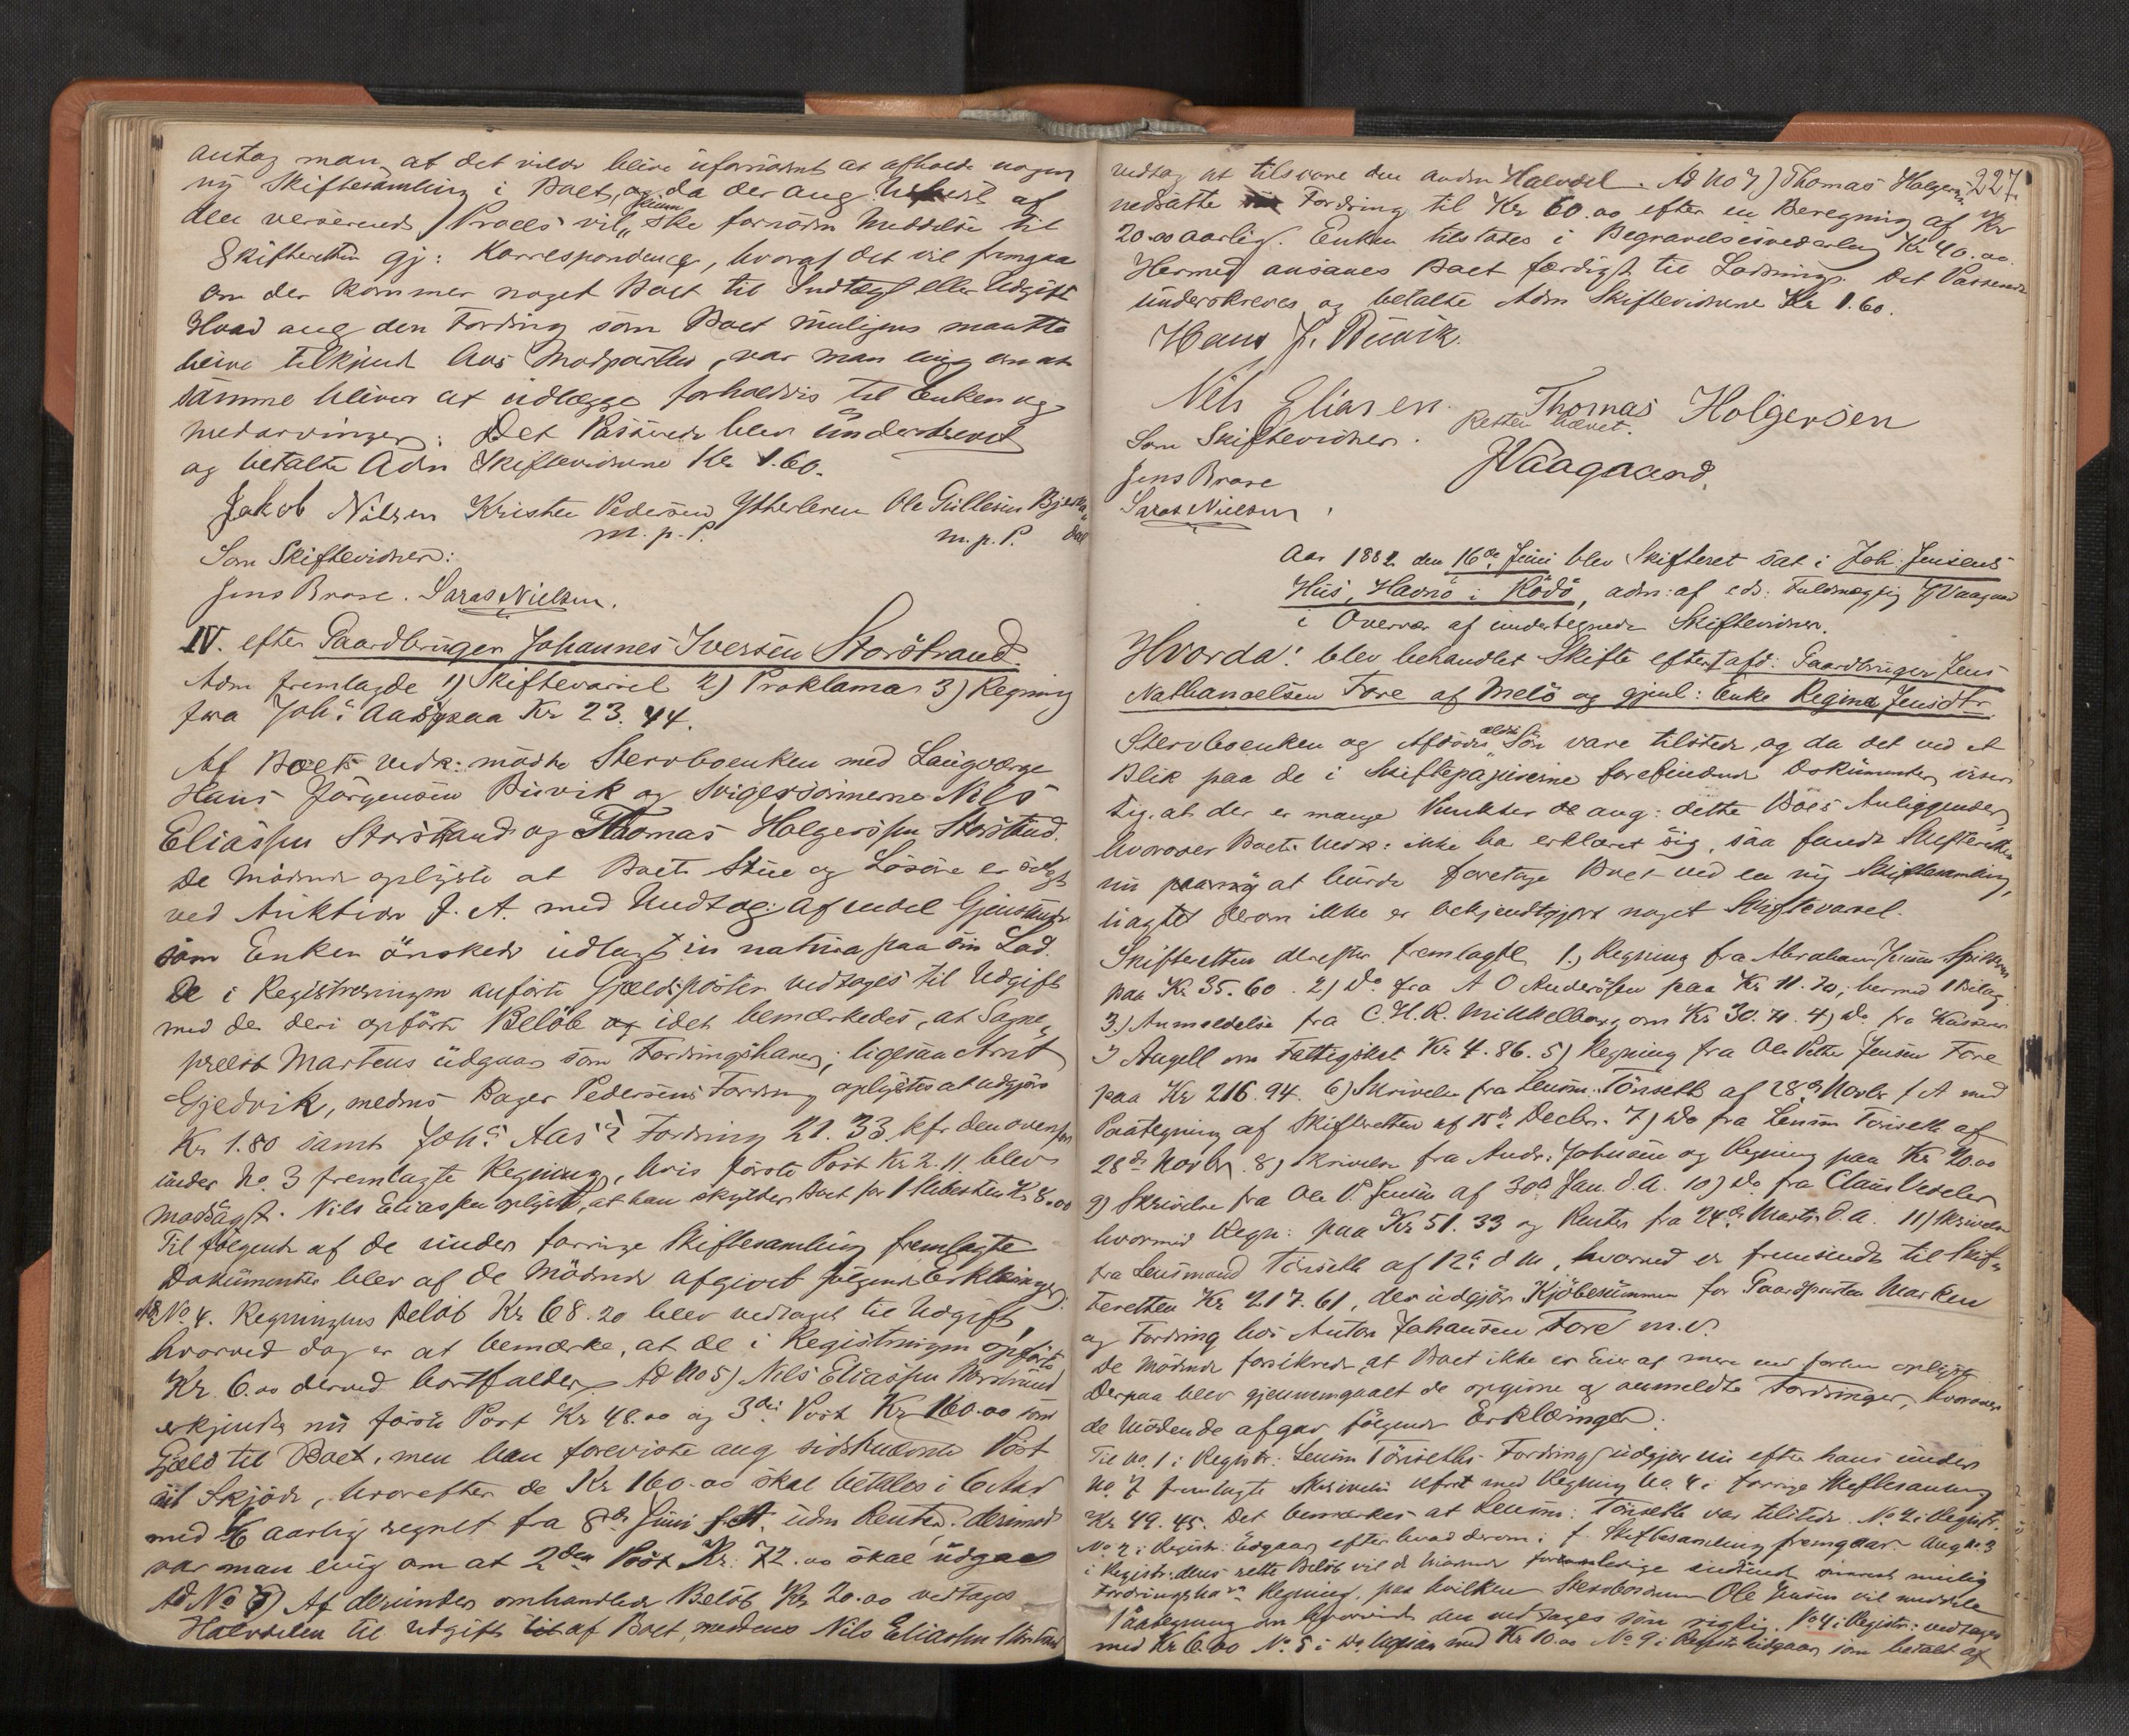 antog man, at det vilde blive ufornødent at afholde nogen
ny Skiftesamling i Boet, og da der ang. Udfald af
den verserende Proces vil ske fornøden Meddelelse til
Skifteretten gj: Korrespondence, hvoraf det vil fremgaa
om der kommer noget Boet til Indtægt eller Udgift
Hvad ang den Fordring som Boet muligens maatte
blive tilkjendt hos Modparten, var man enig om at
samme bliver at udlægge forholdsvis til Enken og
Medarvinger. Det Passerede blev underskrevet
og betalte Adm Skiftevidnerne Kr 1.60.
Jakob Nilsen Kristen Pedersen Ytterleren Ole Gullesen Bjerka
m. p. P. m. p. P. dal
Som Skiftevidner:
Jens Brase. Saras Nielsen.
IV. efter Gaardbruger Johannes Iversen Storstrand.
Adm fremlagde 1) Skiftevarsel 2) Proklama 3) Regning
fra Joh: Aas paa Kr 23.44.
Af Boets Vedk: mødte Stervboenken med Laugværge
Hans Jørgensen Buvik og Svigersønnerne Nils
Eliassen Storstrand og Thomas Holgersen Storstrand.
De Mødende oplyste at Boets Stue og Løsøre er solgt
ved Auktion f. A. med Undtag: af endel Gjenstande
som Enken ønskede udlagt in natura paa sin Lod.
De i Registreringen anførte Gjældsposter vedtoges til Udgift
med de deri opførte Beløb og idet bemærkedes, at Sogne-
prest Martens udgaar som Fordringshaver; ligesaa Arnt
Gjedvik, medens Bager Pedersens Fordring oplystes at udgjøre
Kr. 1.80 samt Joh: Aas's Fordring 21.33 kfr den ovenfor
under No. 3 fremlagte Regning, hvis første Post Kr 2.11 blev
modsagt. Nils Eliassen oplyste, at han skyldte Boet for 1 Kr 8.00
Til følgende af de under forrige Skiftesamling fremlagte
Dokumenter blev af de Mødende afgivet følgende Erklæringer:
Ad No. 4. Regningens Beløb Kr 68.20 blev vedtaget til Udgift,
hvorved dog er at bemærke, at de i Registreringen opførte
Kr. 6.00 derved bortfalder. Ad No 5) Nils Eliassen Storstrand
erkjendte nu første Post Kr 48.00 og 3die Post Kr 160.00 som
Gjæld til Boet, men han foreviste ang sidstnævnte Post
sit Skjøde, hvorefter de Kr 160.00 skal betales i 6 Aar
med aarlig regnet fra 8de Juni f. A. uden Renter. derimod
var man enig om at 2den Post Kr: 72.00 skal udgaa
Ad No 6) Af derunder omhandlede Beløb Kr 20.00 vedtages
Halvdelen til Udgift af Boet, medens Nils Eliassen Storstrand
227.
vedtog at tilsvare den anden Halvdel. Ad No 7) Thomas Holgersen
nedsatte Fordring til Kr 60.00 efter en Beregning af Kr
20.00 aarlig. Enken tilstodes i Begravelsesvederlag Kr 40.00.
Hermed ansaaes Boet færdigt til Lodning. Det Passerede
underskreves og betalte Adm Skiftevidnerne Kr 1.60.
Hans J. Buvik.
Nils Eliasen. Thomas Holgersen
Som Skiftevidner. Retten hævet.
Jens Brase JVaagaard.
Saras Nielsen
Aar 1882 den 16de Juni blev Skifteret sat i Joh: Jensens
Hus, Havnø i Rødø, adm: af eds: Fuldmægtig JVaagaard
i Overvær af undertegnede Skiftevidner.
Hvorda: blev behandlet Skifte efter afd: Gaardbruger Jens
Nathanaelsen Fore af Melø og gjenl: Enke Regina Jensdtr.
Stervboenken og Afdødes ældste Søn vare tilstede og da det ved et
Blik paa de i Skiftepapirerne forefindende Dokumenter viser
sig, at der er mange Punkter ang: dette Boes Anliggender,
hvorover Boets Vedk: ikke har erklæret sig, saa fandt Skifteretten
nu at burde foretage Boet ved en ny Skiftesamling,
uagtet derom ikke er bekjendtgjort noget Skiftevarsel.
Skifteretten derefter fremlagde 1.) Regning fra Abraham Jensen
paa Kr. 35.60. 2) Do fra A O Anderssen paa Kr. 11.70; hermed 1 Bilag
3.) Anmeldelse fra C. H. R. Mikkelborg om Kr 30.71. 4) Do fra Kasserer
J Angell om Fattigskat Kr 4.86. 5) Regning fra Ole Petter Jensen Fore
paa Kr 216.94. 6) Skrivelse fra Lensm: Tønseth af 28de Novbr f A med
Paategning af Skifteretten af 15de Decbr. 7) Do fra Lensm Tønseth af
28de Novbr. 8) Skrivelse fra Andr: Johnsen og Regning paa Kr 20.00
9) Skrivelse fra Ole P. Jensen af 30te Jan. d. A. 10) Do fra Claus Vedeler
hvormed Regn: paa Kr 51.33 og Renter fra 24de Marts d. A. 11) Skrivelse
fra Lensmand Tønseth af 12te d M, hvorved er fremsendt til Skif-
teretten Kr 217.61, der udgjør Kjøbesummen for Gaardparten Marken
og Fordring hos Anton Johansen Fore m.v.
De Mødende forsikrede, at Boet ikke er Eier af mere end forhen oplyst
Derpaa blev gjennemgaaet de opgivne og anmeldte Fordringer, hvorover
de Mødende afgav følgende Erklæringer:
Til No. 1 i Registr: Lensm Tønseths Fordring udgjør nu efter hans under
No. 7 fremlagte Skrivelse kfrt med Regning No. 4 i forrige Skiftesamling
Kr 49.45. Det bemærkes at Lensm: Tønseth var tilstede. No 2 i Registr.
No 2 i Registr: udgaar efter hvad derom i f. Skiftesamling fremgaar. Ang No. 3
i Registr: dens rette Beløb vil de Mødende indsende snarest mulig
Fordringshavers Regning, paa hvilken Stervbosønnen Ole Jensen vil meddele
Paategning om hvorvidt den vedtages som rigtig. No 4 i Registr: vedtages
med Kr 6.00 No. 5 i Do ligesaa med Kr 10.00 No 9 i Registr udgaar som betalt af